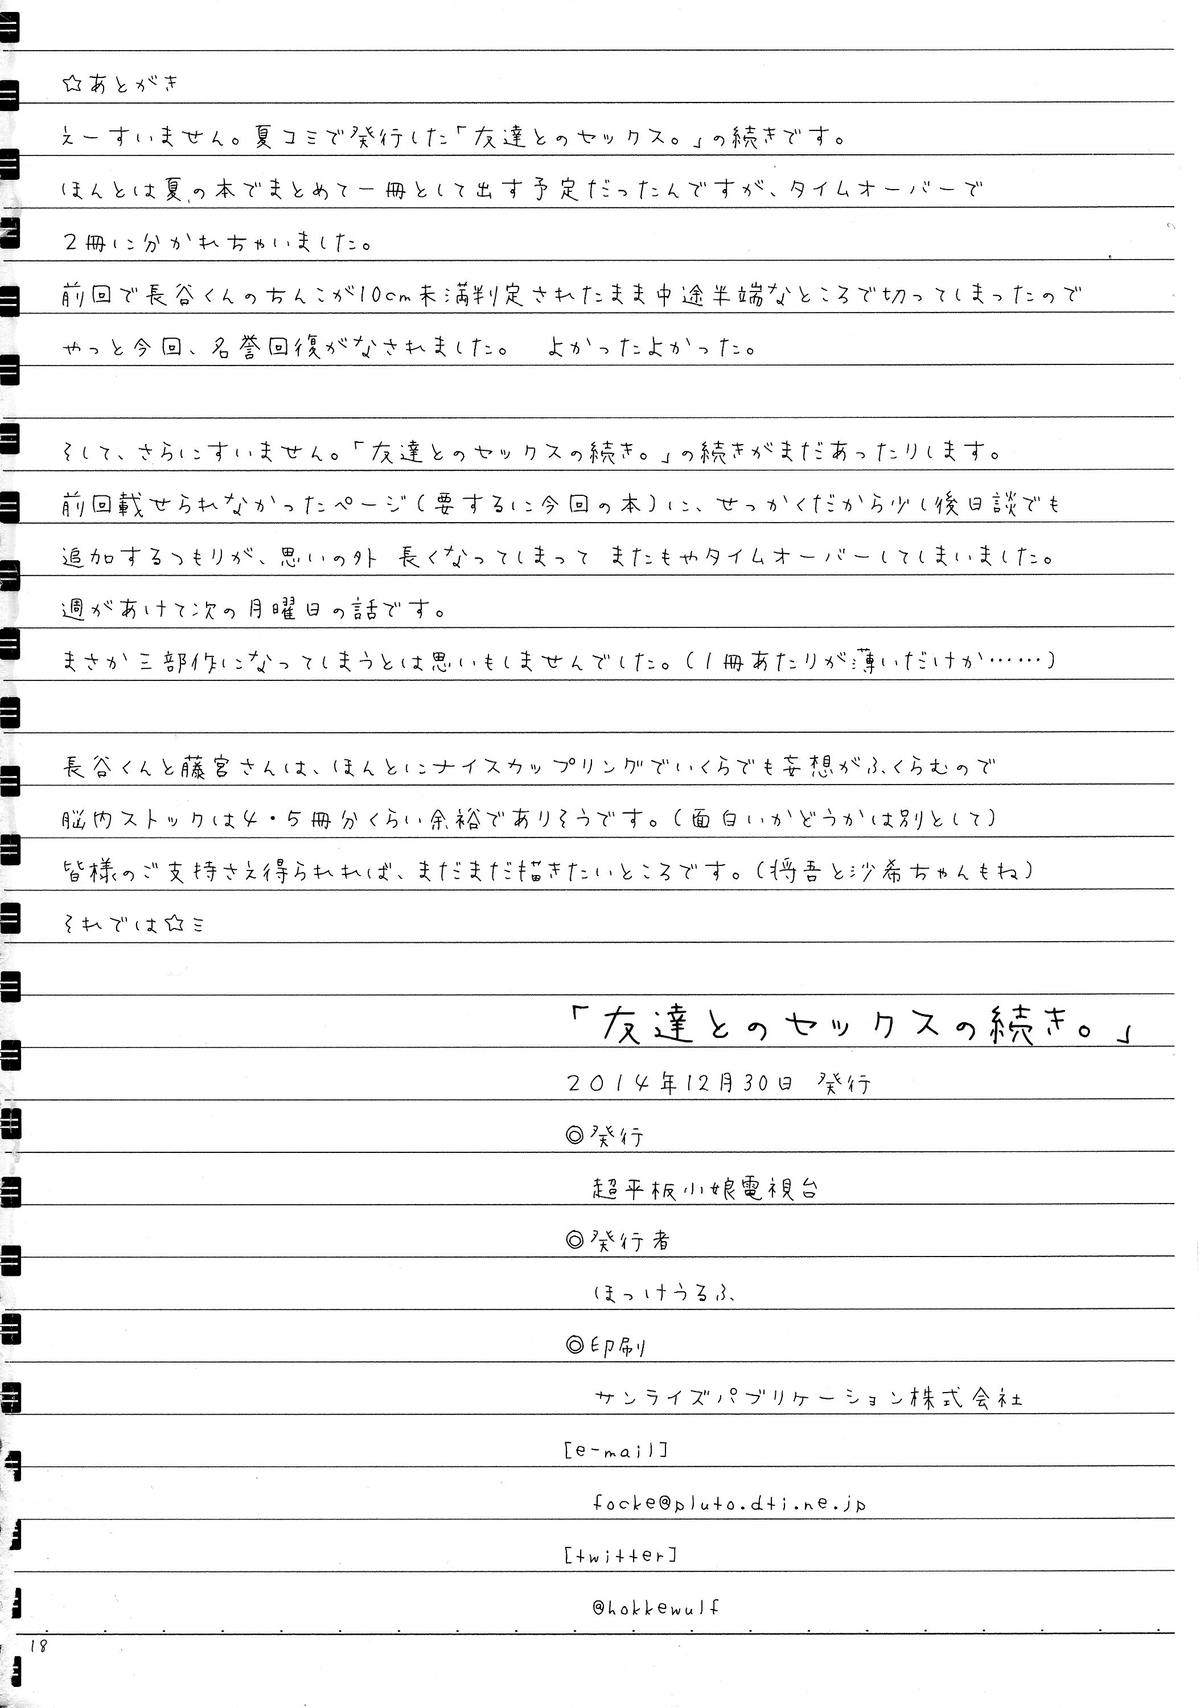 ☆あとがき
えーすいません。夏コミで発行した「友達とのセックス。」の続きです。
ほんとは夏の本でまとめて一冊として出す予定だったんですが、タイムオーバーで
2冊に分かれちゃいました。
前回で長谷くんのちんこが10cm未満判定されたまま中途半端なところで切ってしまったので
やっと今回、名誉回復がなされました。 よかったよかった。
そして、さらにすいません。「友達とのセックスの続き。」の続きがまだあったりします。
前回載せられなかったページ(要するに今回の本)に、せっかくだから少し後日談でも
追加するつもりが、思いの外 長くなってしまって またもやタイムオーバーしてしまいました。
週があけて次の月曜日の話です。
まさか三部作になってしまうとは思いもしませんでした。(1冊あたりが薄いだけか……)
長谷くんと藤宮さんは、ほんとにナイスカップリングでいくらでも妄想がふくらむので
脳内ストックは4・5冊分くらい余裕でありそうです。(面白いかどうかは別として)
皆様のご支持さえ得られれば、まだまだ描きたいところです。(将吾と沙希ちゃんもね)
それでは☆ミ
「友達とのセックスの続き。」
2014年12月30日 発行
◎発行
超平板小娘電視台
◎発行者
ほっけうるふ
◎印刷
サンライズパブリケーション株式会社
[e-mail]
focke@pluto.dti.ne.jp
[twitter]
@hokkewulf
18